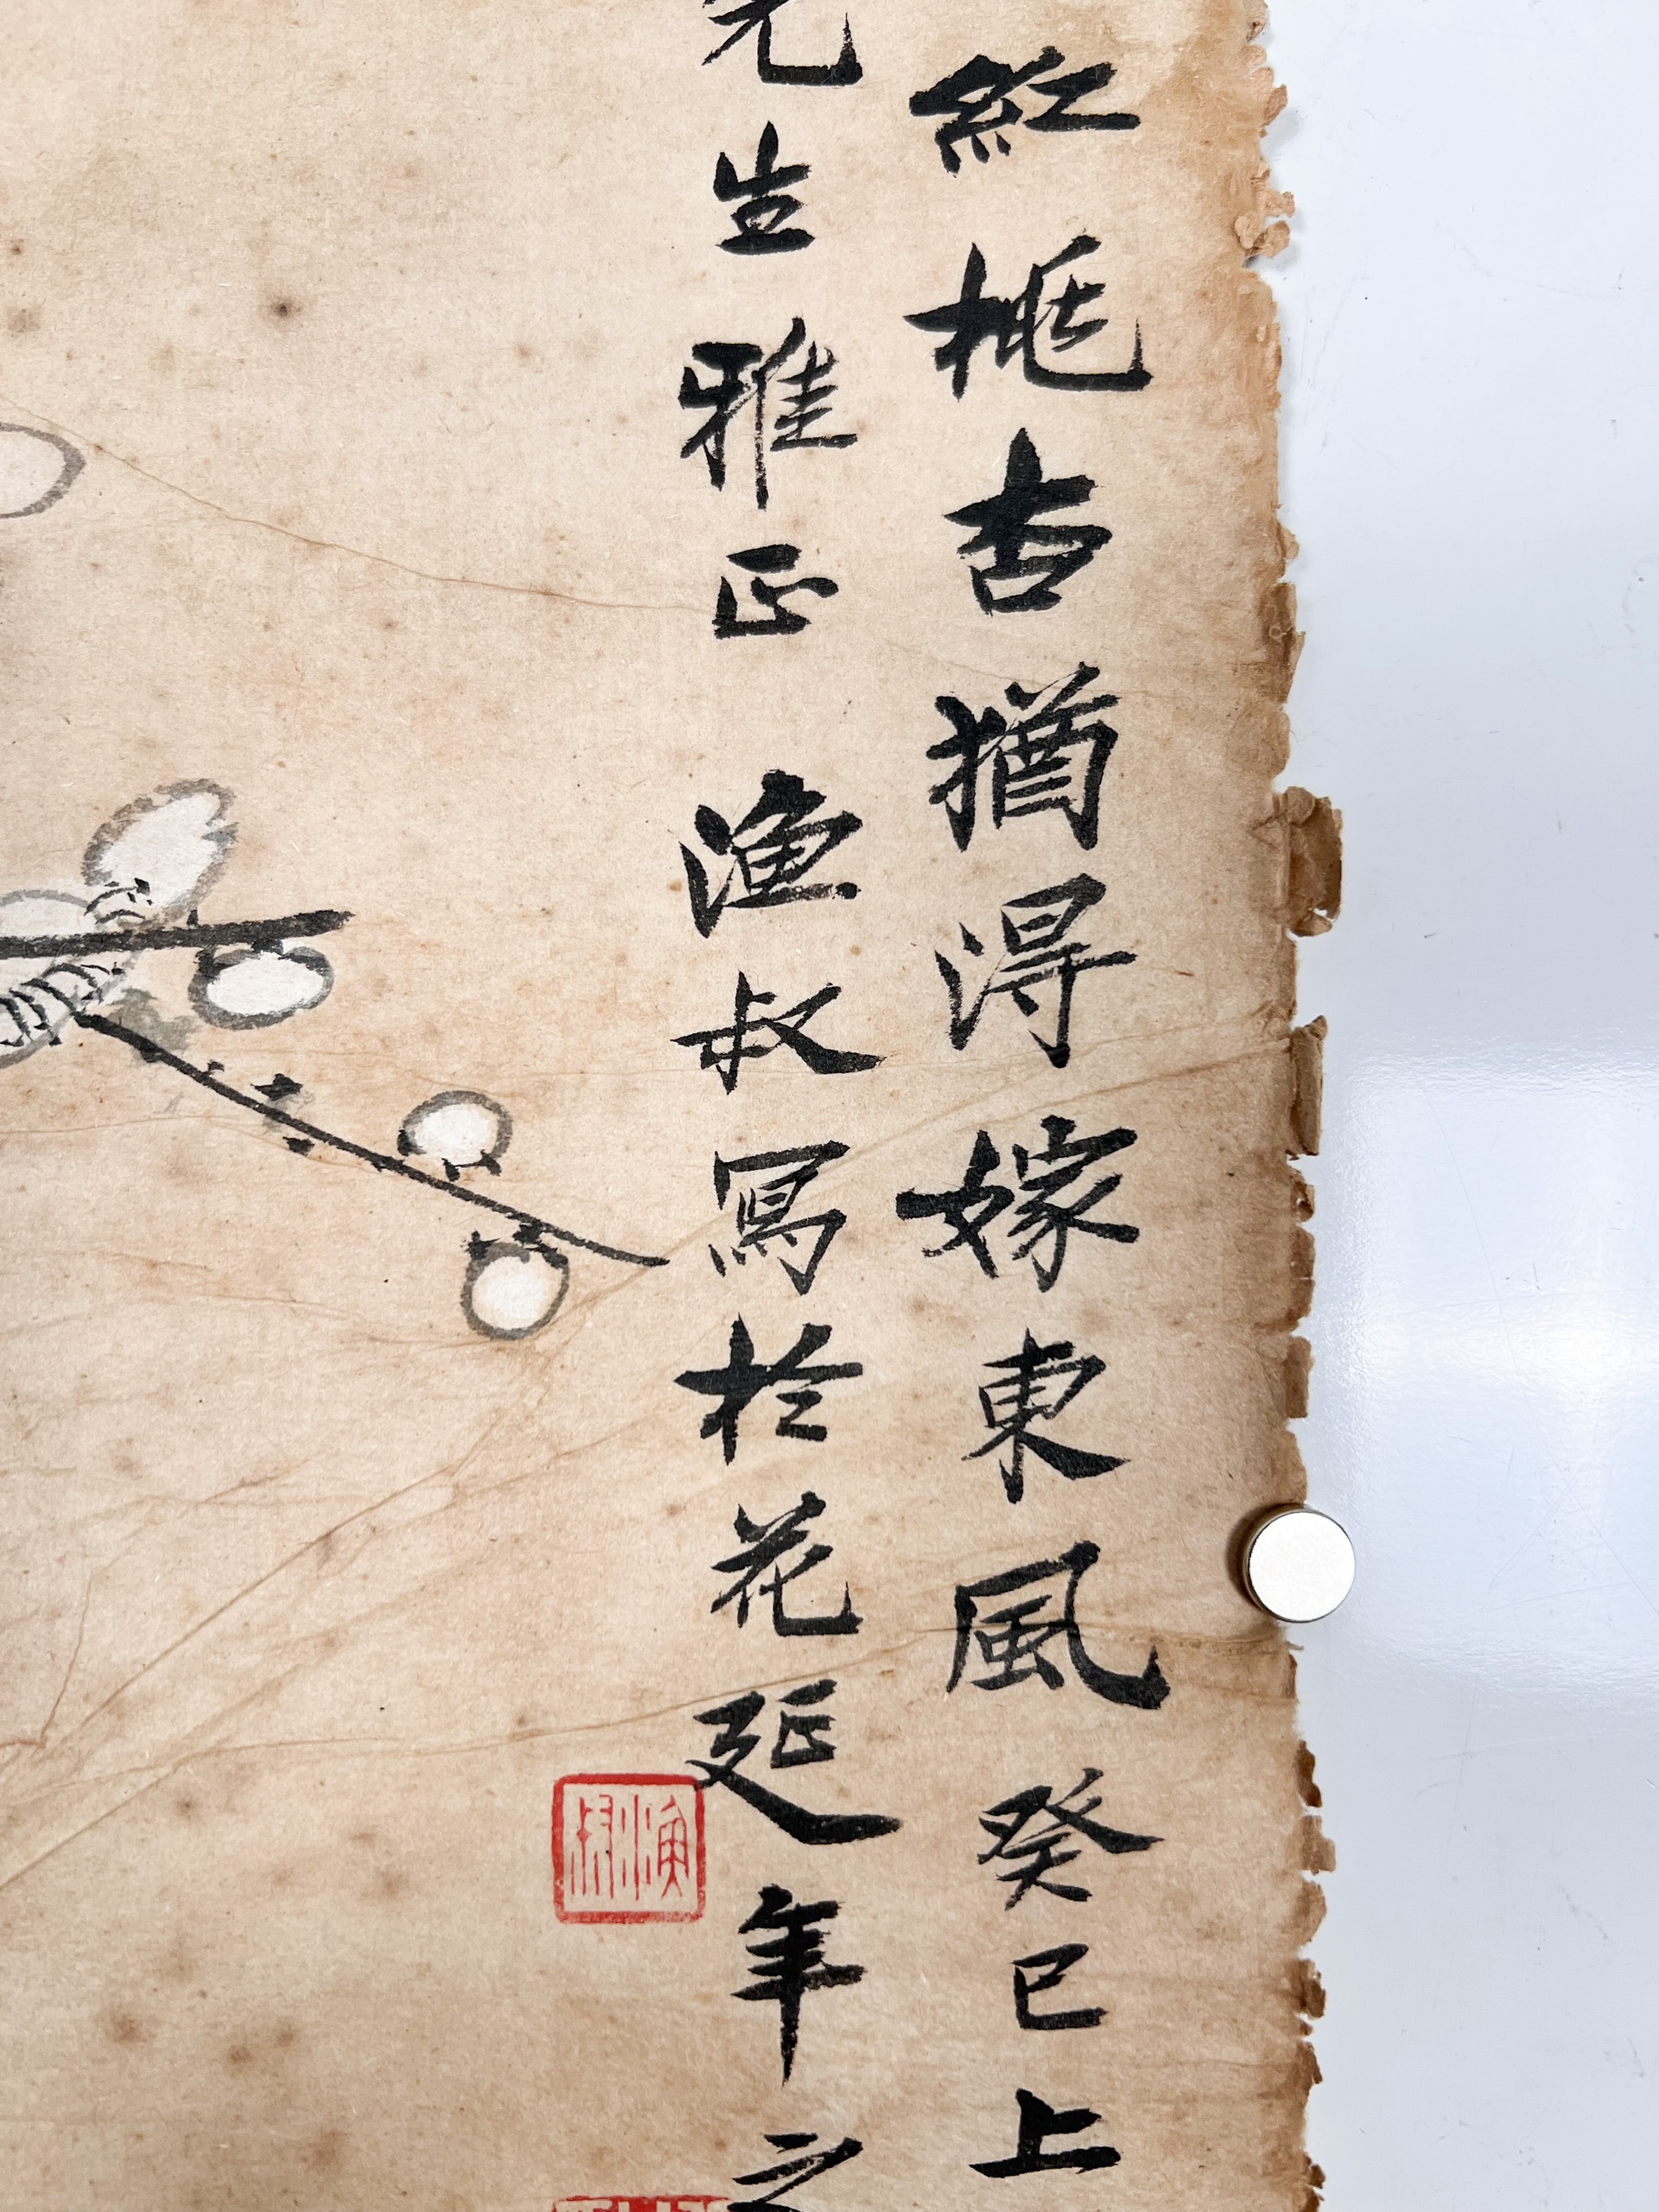 紅桃杏猶得嫁東風癸巳上
先生雅正漁叔寫於花延年之
漁叔